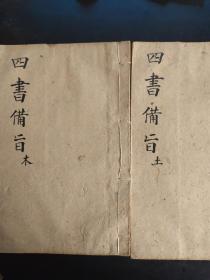 四書備旨土
四書備旨木